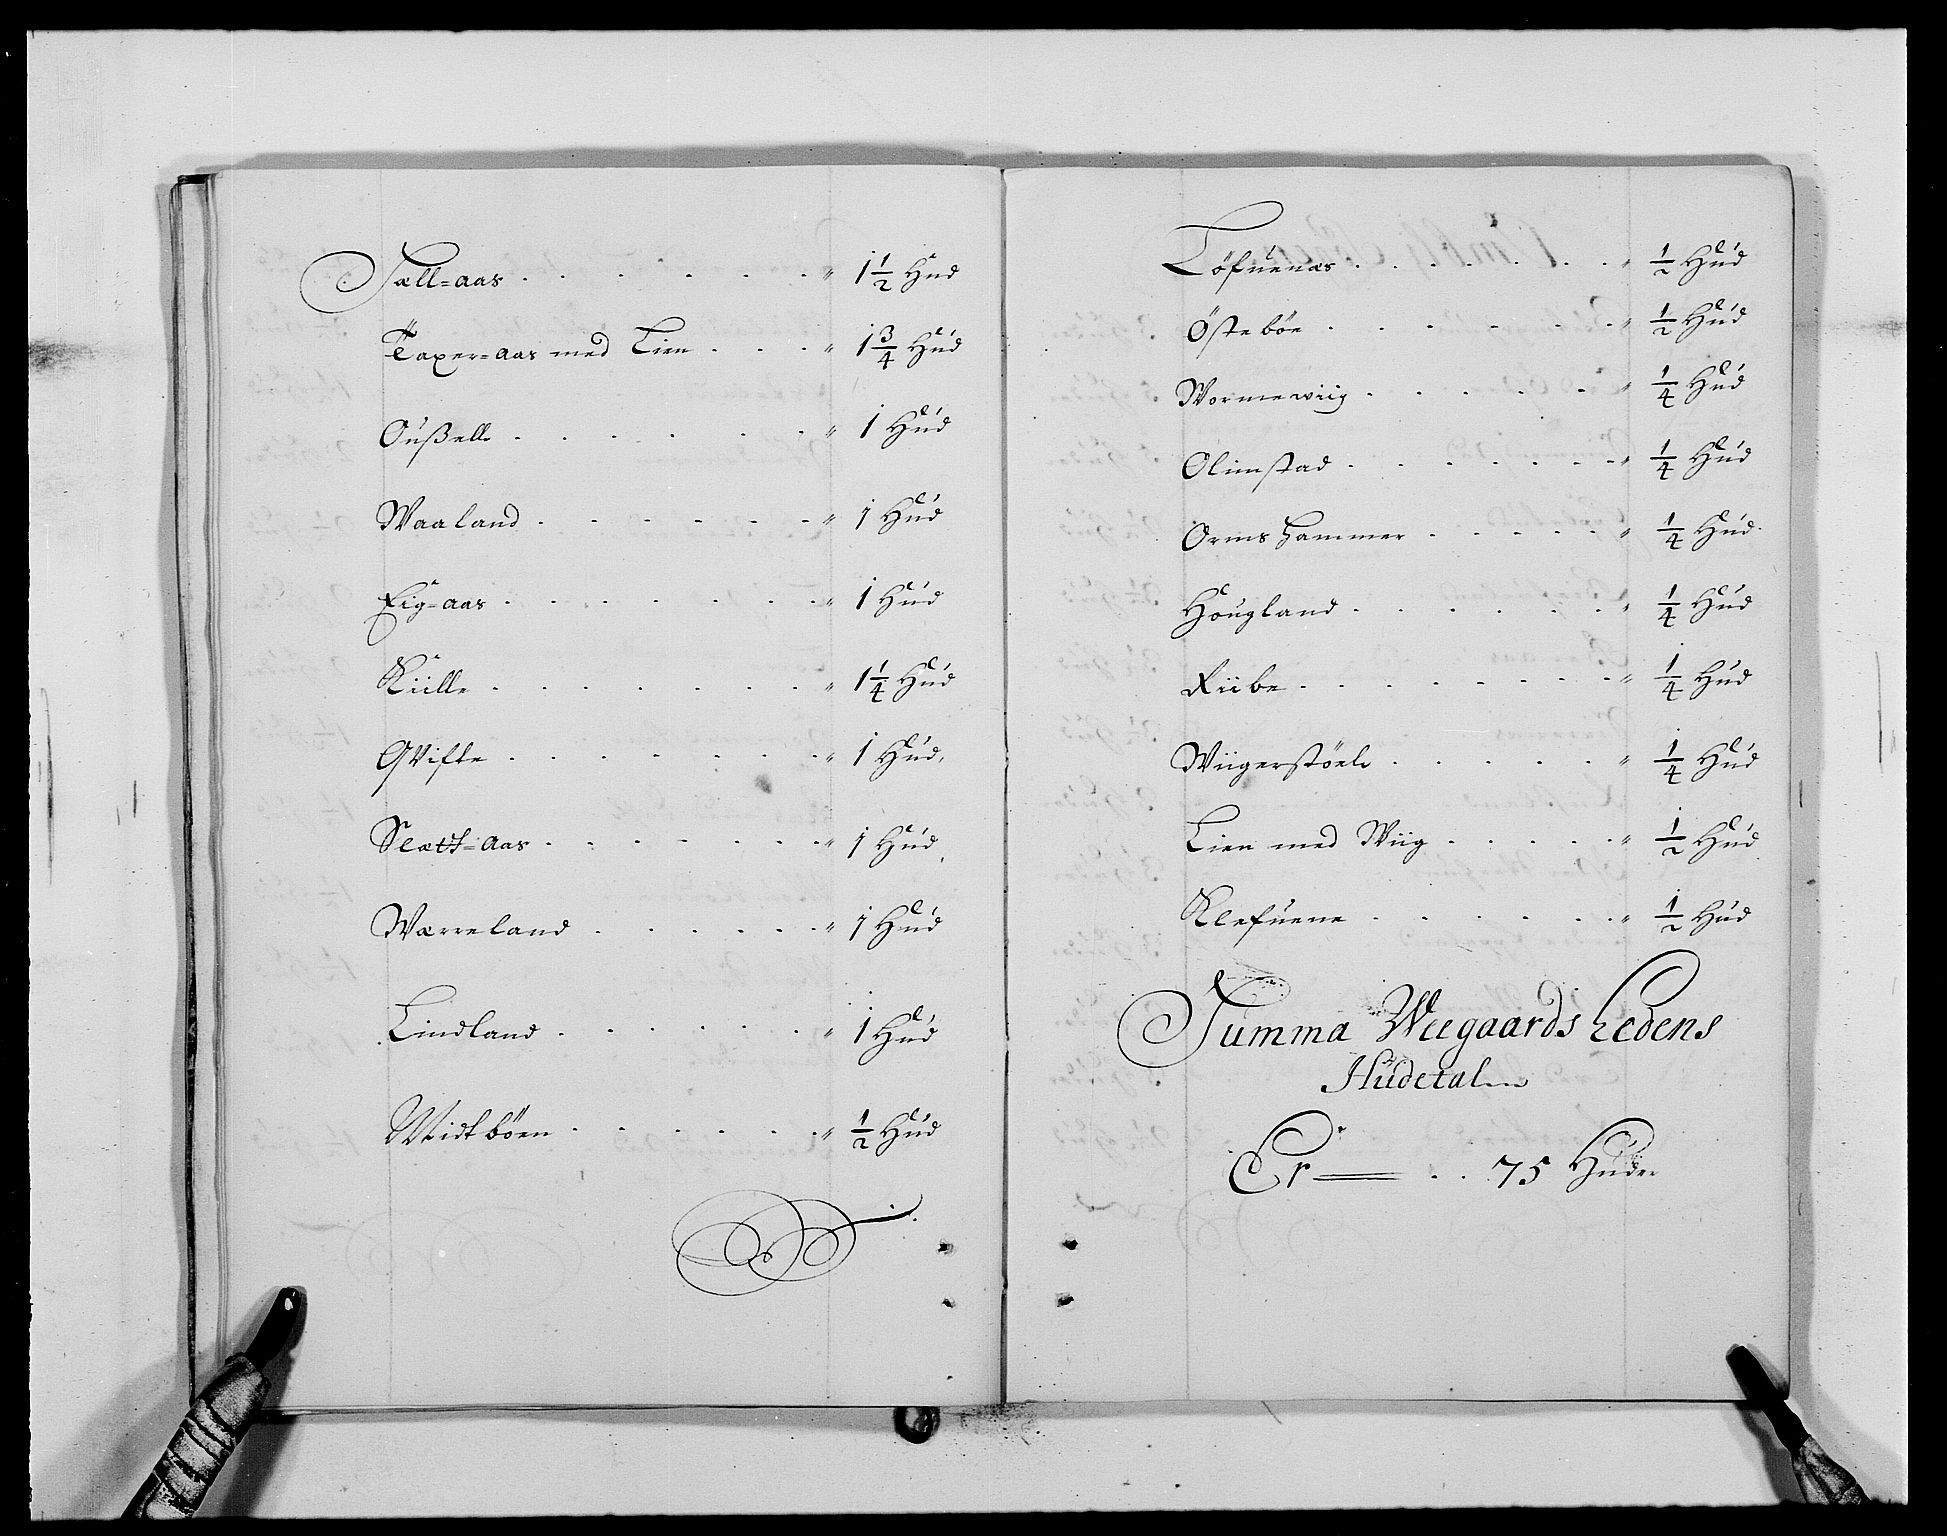 Tæll=aas . . . . . . . " 1 1/2 Hud
Taxer=aas med Lien . . . " 1 3/4 Hud
Oußell . . . . . . . " 1 Hud
Waaland . . . . . . . " 1 Hud
Eig=aas . . . . . . . . " 1 Hud
Külle . . . . . . . . " 1 1/4 Hud
QVifte . . . . . . . . " 1 Hud,
Slætt=aas . . . . . . . " 1 Hud,
Wærreland . . . . . . " 1 Hud
Lindland . . . . . . . " 1 Hud
Midtböen . . . . . . " 1/2 Hud
Löfuenæs . . . . . . . " 1/2 Hud
Östeböe . . . . . . . " 1/2 Hud
Wormewiig . . . . . . " 1/4 Hud
Olimstad . . . . . . . " 1/4 Hud
Ormshammer . . . . . " 1/4 Hud.
Hougland . . . . . . " 1/4 Hud
Riibe . . . . . . . . " 1/4 Hud
Wiigerstöell . . . . . " 1/4 Hud
Lien med Wiig . . . . . " 1/2 Hud
Klefuene . . . . . . " 1/2 Hud
Summa Weegaards Ledens
Hudetalen
Er = . . 75 Huder